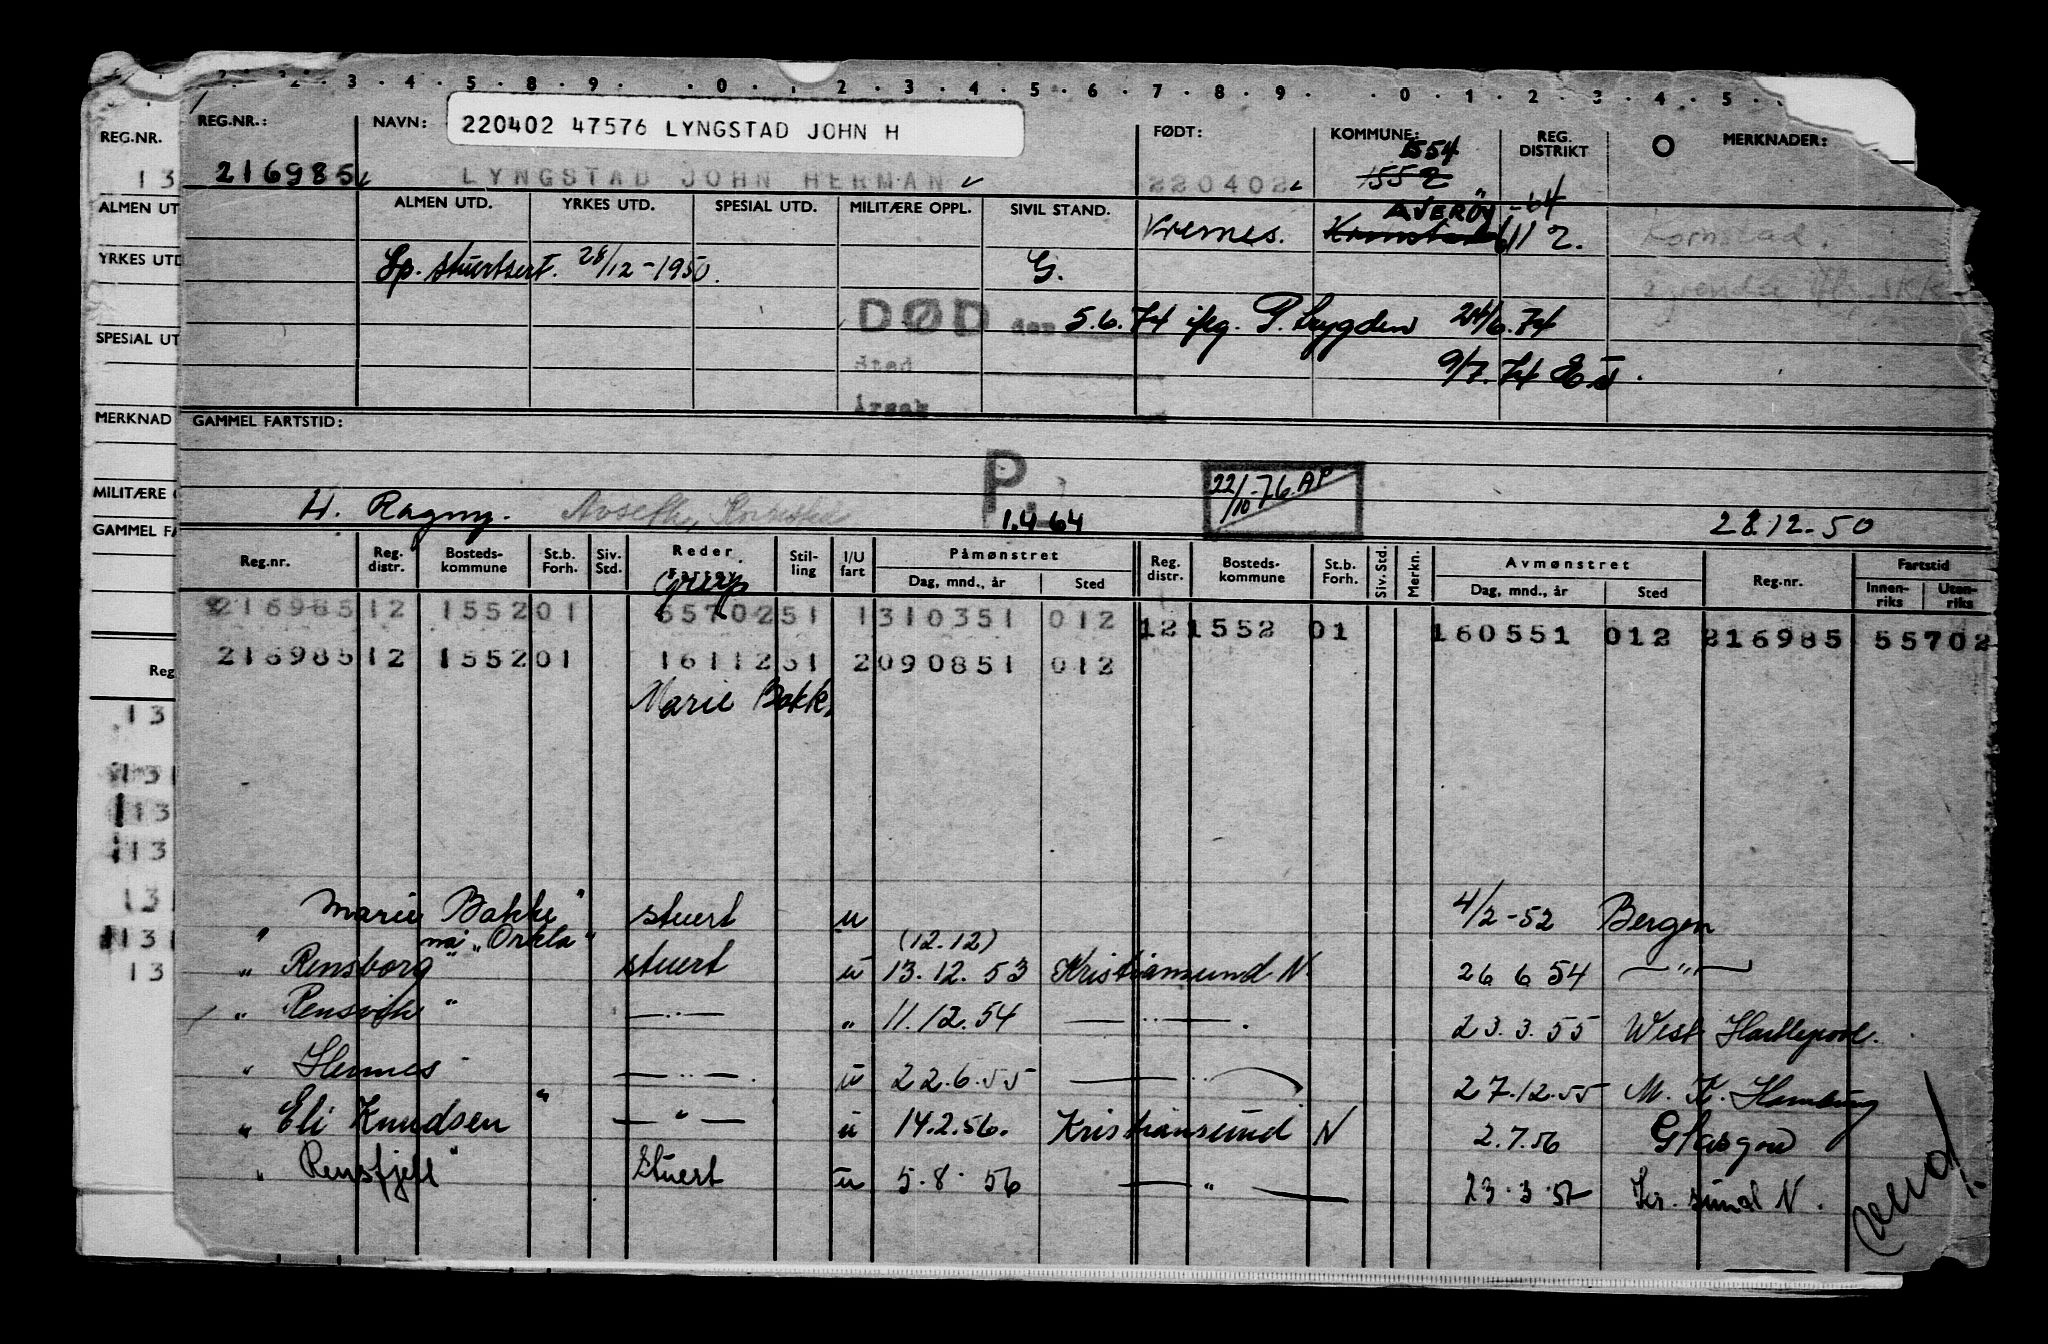 REG.NR.: NAVN: 220402 47576 LYNGSTAD JOHN H FØDT: KOMMUNE: REG. DISTRIKT MERKNADER:
1554
216985 LYNGSTAD JOHN HERMAN 220402 1552
ALMEN UTD. YRKES UTD. SPESIAL UTD. MILITÆRE OPPL. SIVIL STAND. AVERØY -64
Kornstad 112. Kornstad.
Sp. stuertsert. 28/12-1950. G.
DØD den 5.6.74 iflg. P. trygden 24/6.74
Sted 9/7.74
Årsak
GAMMEL FARTSTID:
P. 22/10-76. AP
H. Ragny. 1.4 64 28 12 - 50
Reg.nr. Reg. distr. Bosteds-kommune St.b. Forh. Siv. Std. Reder Stil-ling I/U fart Påmønstret Reg. distr. Bosteds-kommune St.b. Forh. Siv. Std. Merkn. Avmønstret Reg.nr. Fartstid
Dag, mnd., år Sted Dag, mnd., år Sted Innen-riks Uten-riks
Grip
216985 12 1552 01 55702 51 1 310351 012 12 1552 01 160551 012 216985 55702
216985 12 1552 01 16112 51 2 090851 012
Marie Bakk.
" Marie Bakke" stuert u 4/2-52 Bergen
nå "Orkla" (12.12)
" Rensborg" stuert u 13.12.53 Kristiansund N. 26 6 54 — " —
" Rensvik" — " — " 11.12.54 — " — . 23.3.55 West Hartlepool.
" Hermes — " — . u 22.6.55 — " — 27.12.55 M. K. Hamburg
" Eli Knudsen " — " — u 14.2.56. Kristiansund N 2.7.56 Glasgow
" Rensfjell" Stuert u 5.8.56 — " — 23.3.57 Kr. sund N.
vend!
REG.NR.
13
ALMEN UT
YRKES UTD
SPESIAL UT
MERKNAD
MILITÆRE
GAMMEL FA
Reg
13
13
13
13
13
13
13